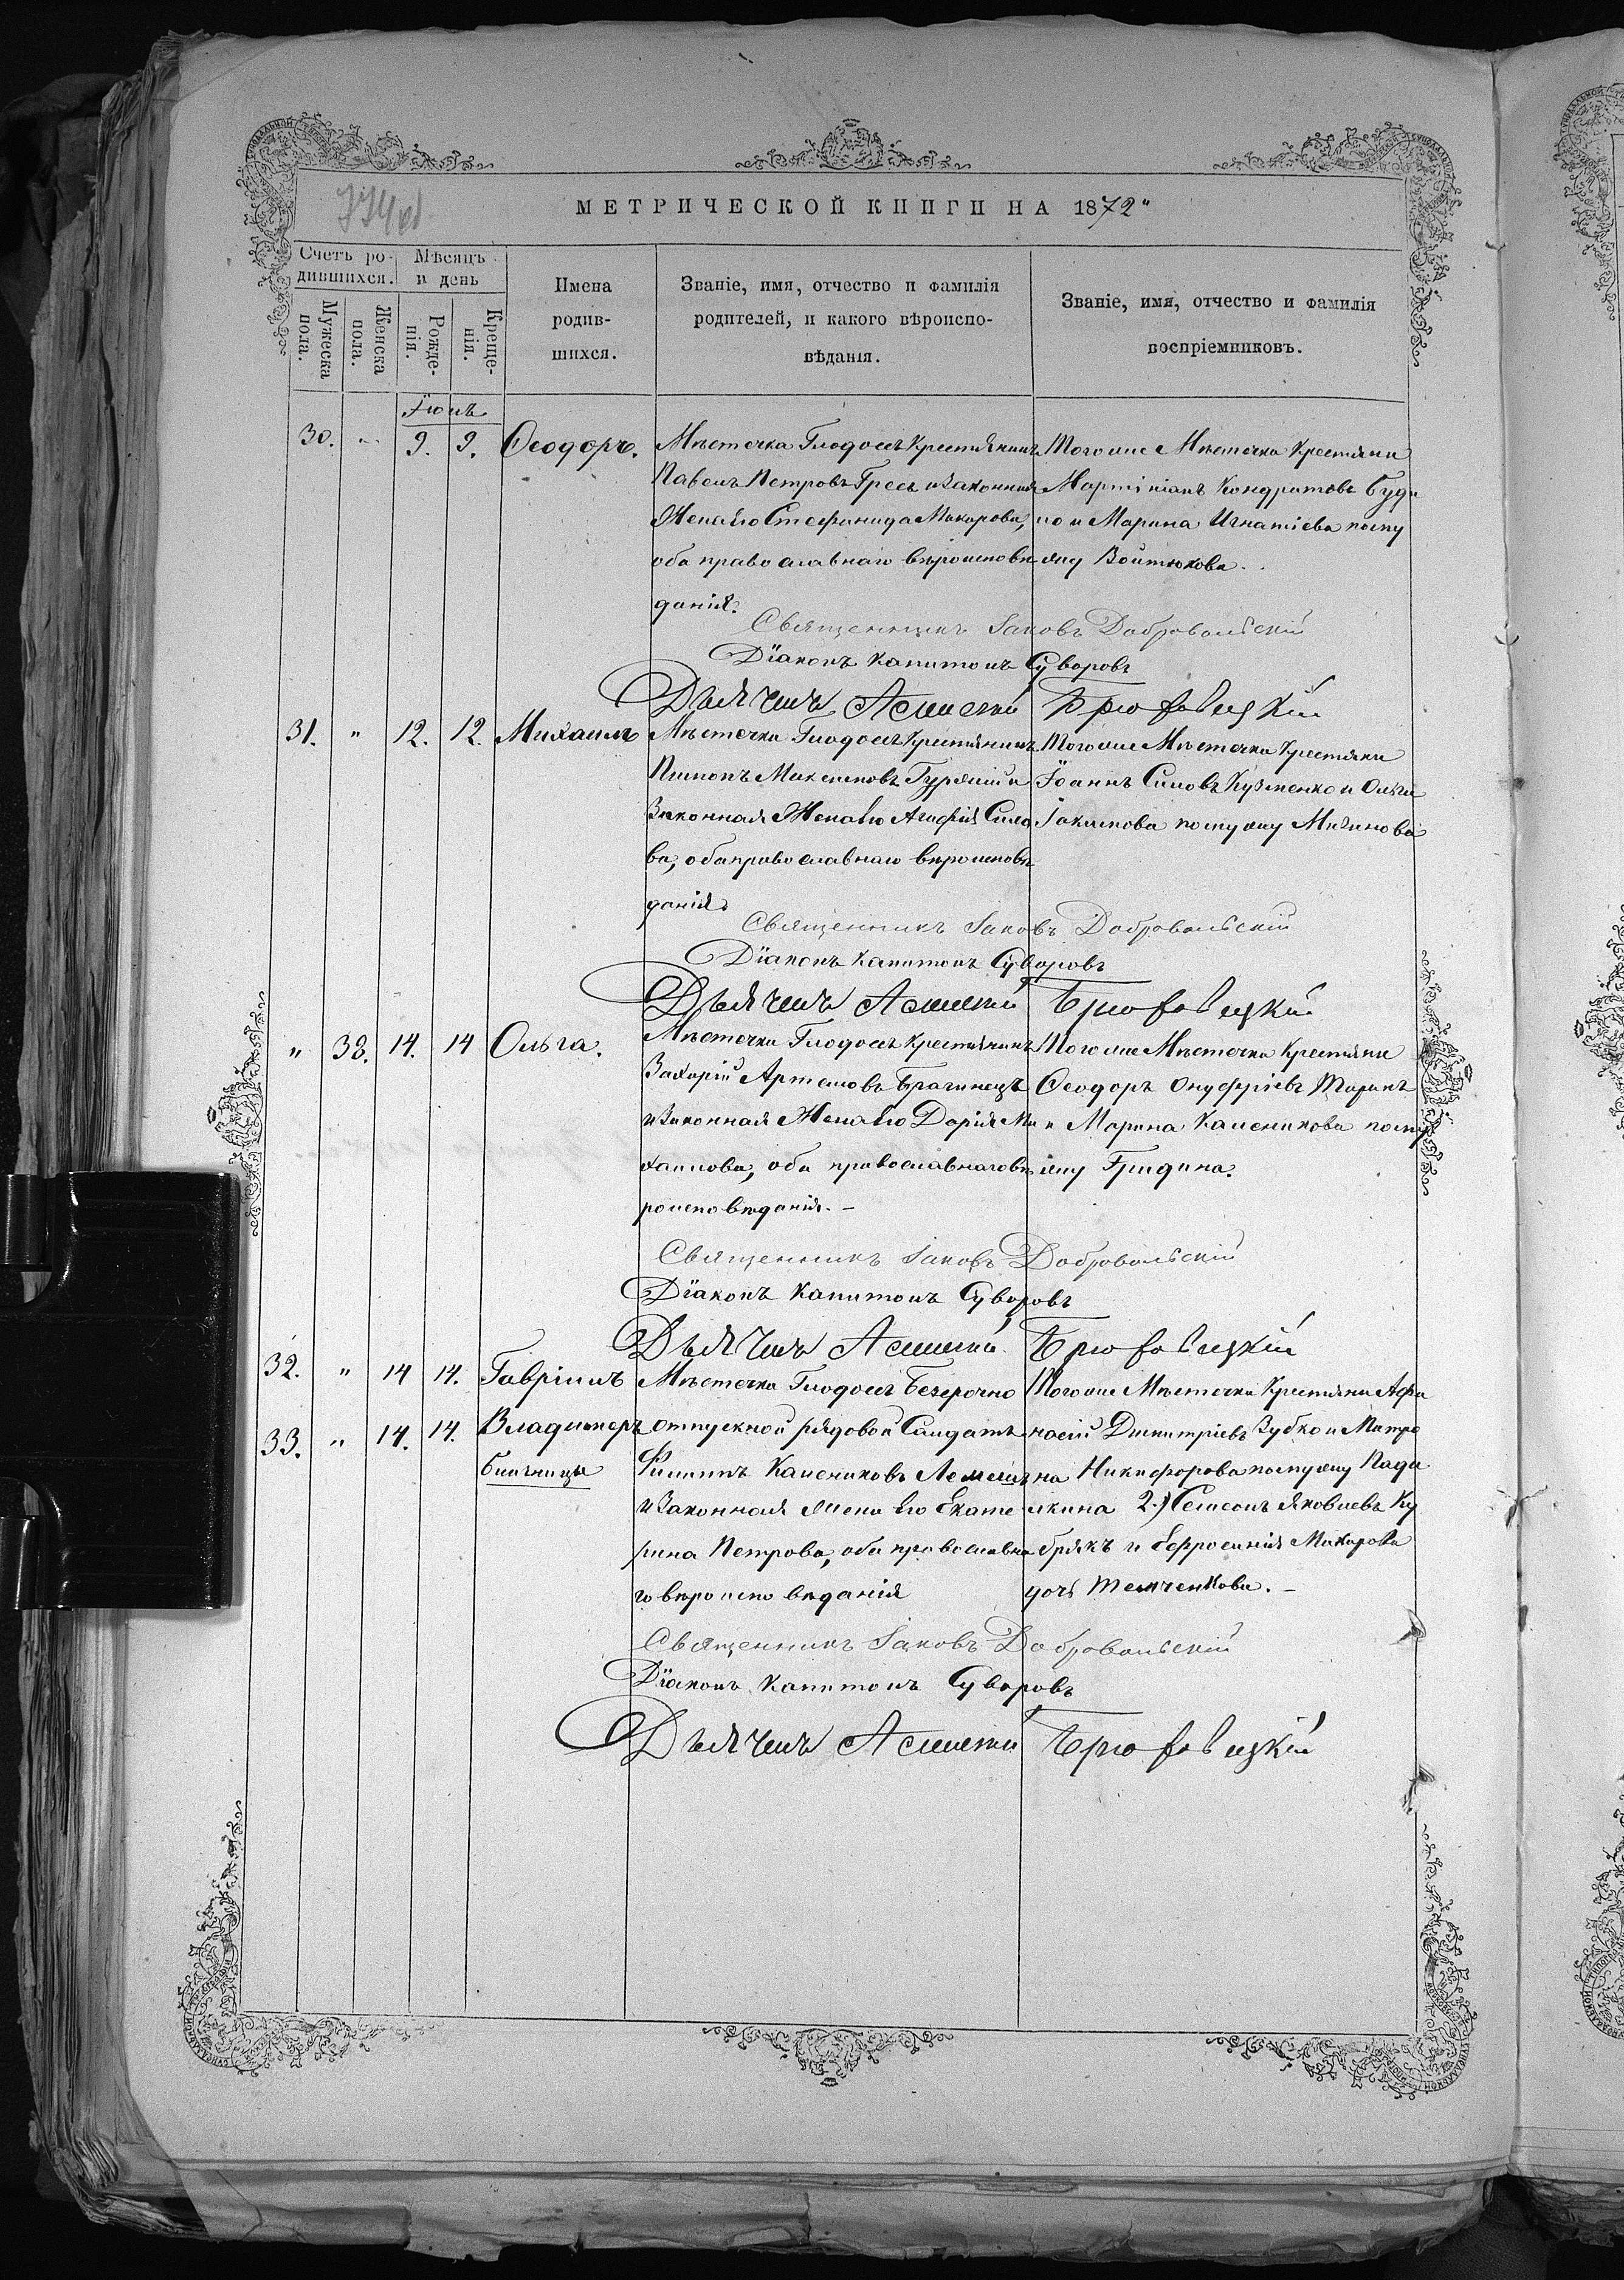 МЕТРИЧЕСКОЙ КНИГИ НА 1872"
Счетъ ро-
дившихся.
Мѣсяцъ
и день
Мужеска
пола.
Женска
пола.
Рожде-
нія.
Креще-
нія.
Имена
родив-
шихся.
Званіе, имя, отчество и фамилія
родителей, и какого вѣроиспо-
вѣданія.
Званіе, имя, отчество и фамилія
воспріемниковъ.
Іюнь
30. " 9. 9. Ѳеодоръ.
Мѣстечка Глодосъ Крестьянинъ
Павелъ Петровъ Гресь и Законная
Жена Его Стефанида Макарова,
оба православнаго вѣроисповѣ
данія.
Того же Мѣстечка Крестьяни
Мартініанъ Кондратовъ Буд
и Марина Игнатіева по му
жу Войтюкова.
Священникъ Іаковъ Добровольскій
Діаконъ Капитонъ Суворовъ
Дьячекъ Алексѣй Брюховецкій
31. " 12. 12. Михаилъ
Мѣстечка Глодосъ Крестьянинъ
Пименъ Максимовъ Гуржій и
Законная Жена Его Агафія Сило
ва, оба православнаго вѣроисповѣ
данія.
Того же Мѣстечка Крестьяни
Іоаннъ Силовъ Кузменко и Ольга
Іакимова по мужу
Священникъ Іаковъ Добровольскій
Діаконъ Капитонъ Суворовъ
Дьячекъ Алексѣй Брюховецкій
" 33. 14. 14 Ольга.
Мѣстечка Глодосъ Крестьянинъ
Захарій Артемовъ Брагинецъ
и Законная Жена Его Дарія Ми
хаилова, оба православнаго вѣ
роисповѣданія. –
Того же Мѣстечка Крестьяни
Ѳеодоръ Онуфріевъ Таранъ
и Марина Каленикова по му
жу Гридина.
Священникъ Іаковъ Добровольскій
Діаконъ Капитонъ Суворовъ
Дьячекъ Алексѣй Брюховецкій
32. " 14 14. Гавріилъ
33. " 14. 14. Владимеръ
близнецы
Мѣстечка Глодосъ Безсрочно
отпускной рядовой Салдатъ
Филиппъ Калениковъ Лемешъ
и Законная жена Его Екате
рина Петрова, оба православна
го вѣроисповѣданія
Того же Мѣстечка Крестьяни Афа
насій Димитріевъ Зубко и Матро
на Никифорова по мужу Пада
лкина 2.) Семеонъ Яковлевъ Ку
брякъ и Ефросинія Макарова
дочь Темченкова. –
Священникъ Іаковъ Добровольскій
Діаконъ Капитонъ Суворовъ
Дьячекъ Алексѣй Брюховецкій